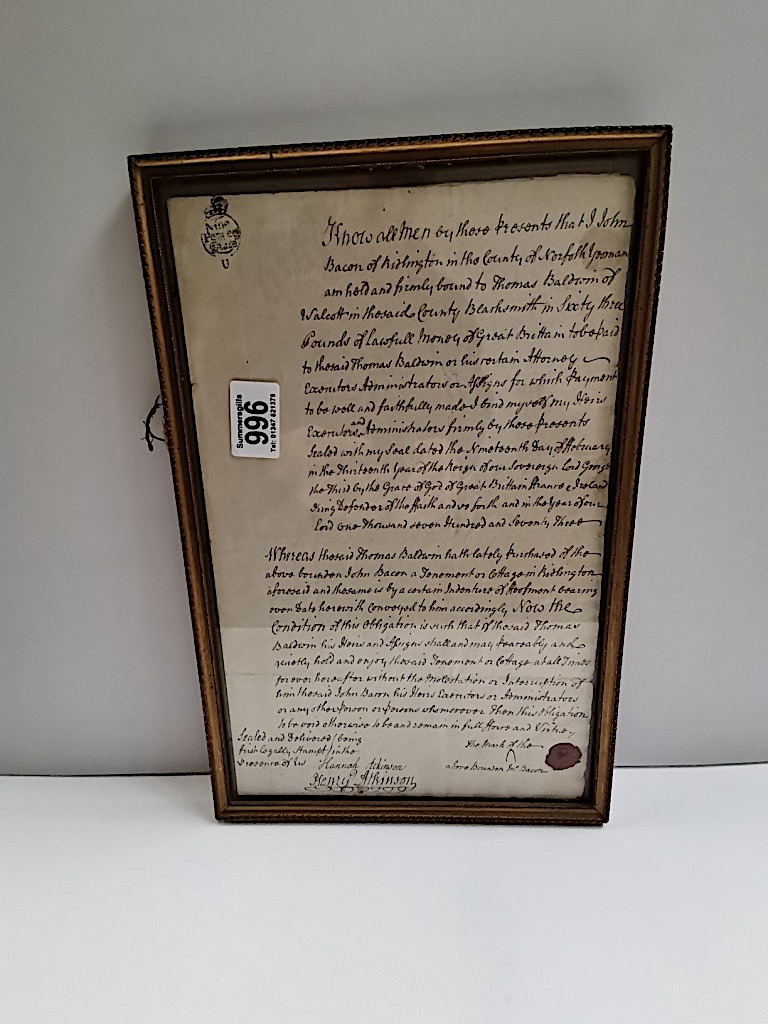 Nine
Pence
U
Know all Men by these Presents that I John
Bacon of Ridlington in the County of Norfolk Yeoman
am held and firmly bound to Thomas Baldwin of
Walcott in the said County Blacksmith in Sixty three
Pounds of Lawfull Money of Great Brittain to be paid
to the said Thomas Baldwin or his certain Attorney
Executors Administrators or Assigns for which Payment
to be well and faithfully made I bind myself my Heirs
Executors and Administrators firmly by these Presents
Sealed with my Seal dated the Nineteenth Day of February
in the Thirteenth Year of the Reign of our Sovereign Lord George
the Third by the Grace of God of Great Brittain France & Ireland
King Defender of the Faith and so forth and in the Year of our
Lord one Thousand seven Hundred and Seventy Three
Whereas the said Thomas Baldwin hath lately Purchased of the
above bounden John Bacon a Tenement or Cottage in Ridlington
aforesaid and the same is by a certain Indenture of Feofment bearing
even Date herewith Conveyed to him accordingly Now the
Condition of this Obligation is such that if the said Thomas
Baldwin his Heirs and Assigns shall and may Peaceably and
quietly hold and enjoy the said Tenement or Cottage at all Times
for ever hereafter without the Molestation or Interruption of
him the said John Bacon his Heirs Executors or Administrators
or any other Person or Persons whomsoever Then this Obligation
to be void otherwise to be and remain in full Force and Virtue
Sealed and Delivered (being
first legally Stampt) in the
Presence of us
Hannah Atkinson
Henry Atkinson
The Mark of the
above Bounden Jno. Bacon
Summersgills
996
Tel: 01347 821379